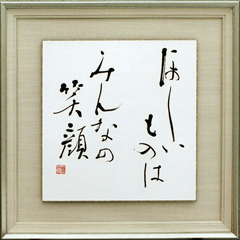 ほしい
ものは
みんなの
笑顔